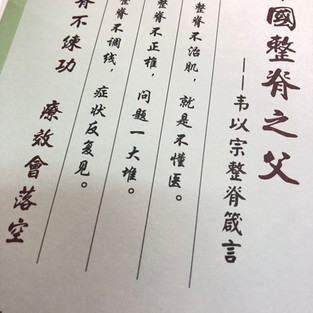 國整脊之父
——韦以宗整脊箴言
整脊不治肌，就是不懂医。
脊不正椎，问题一大堆。
脊不调线，症状反复见。
脊不練功 療效會落空